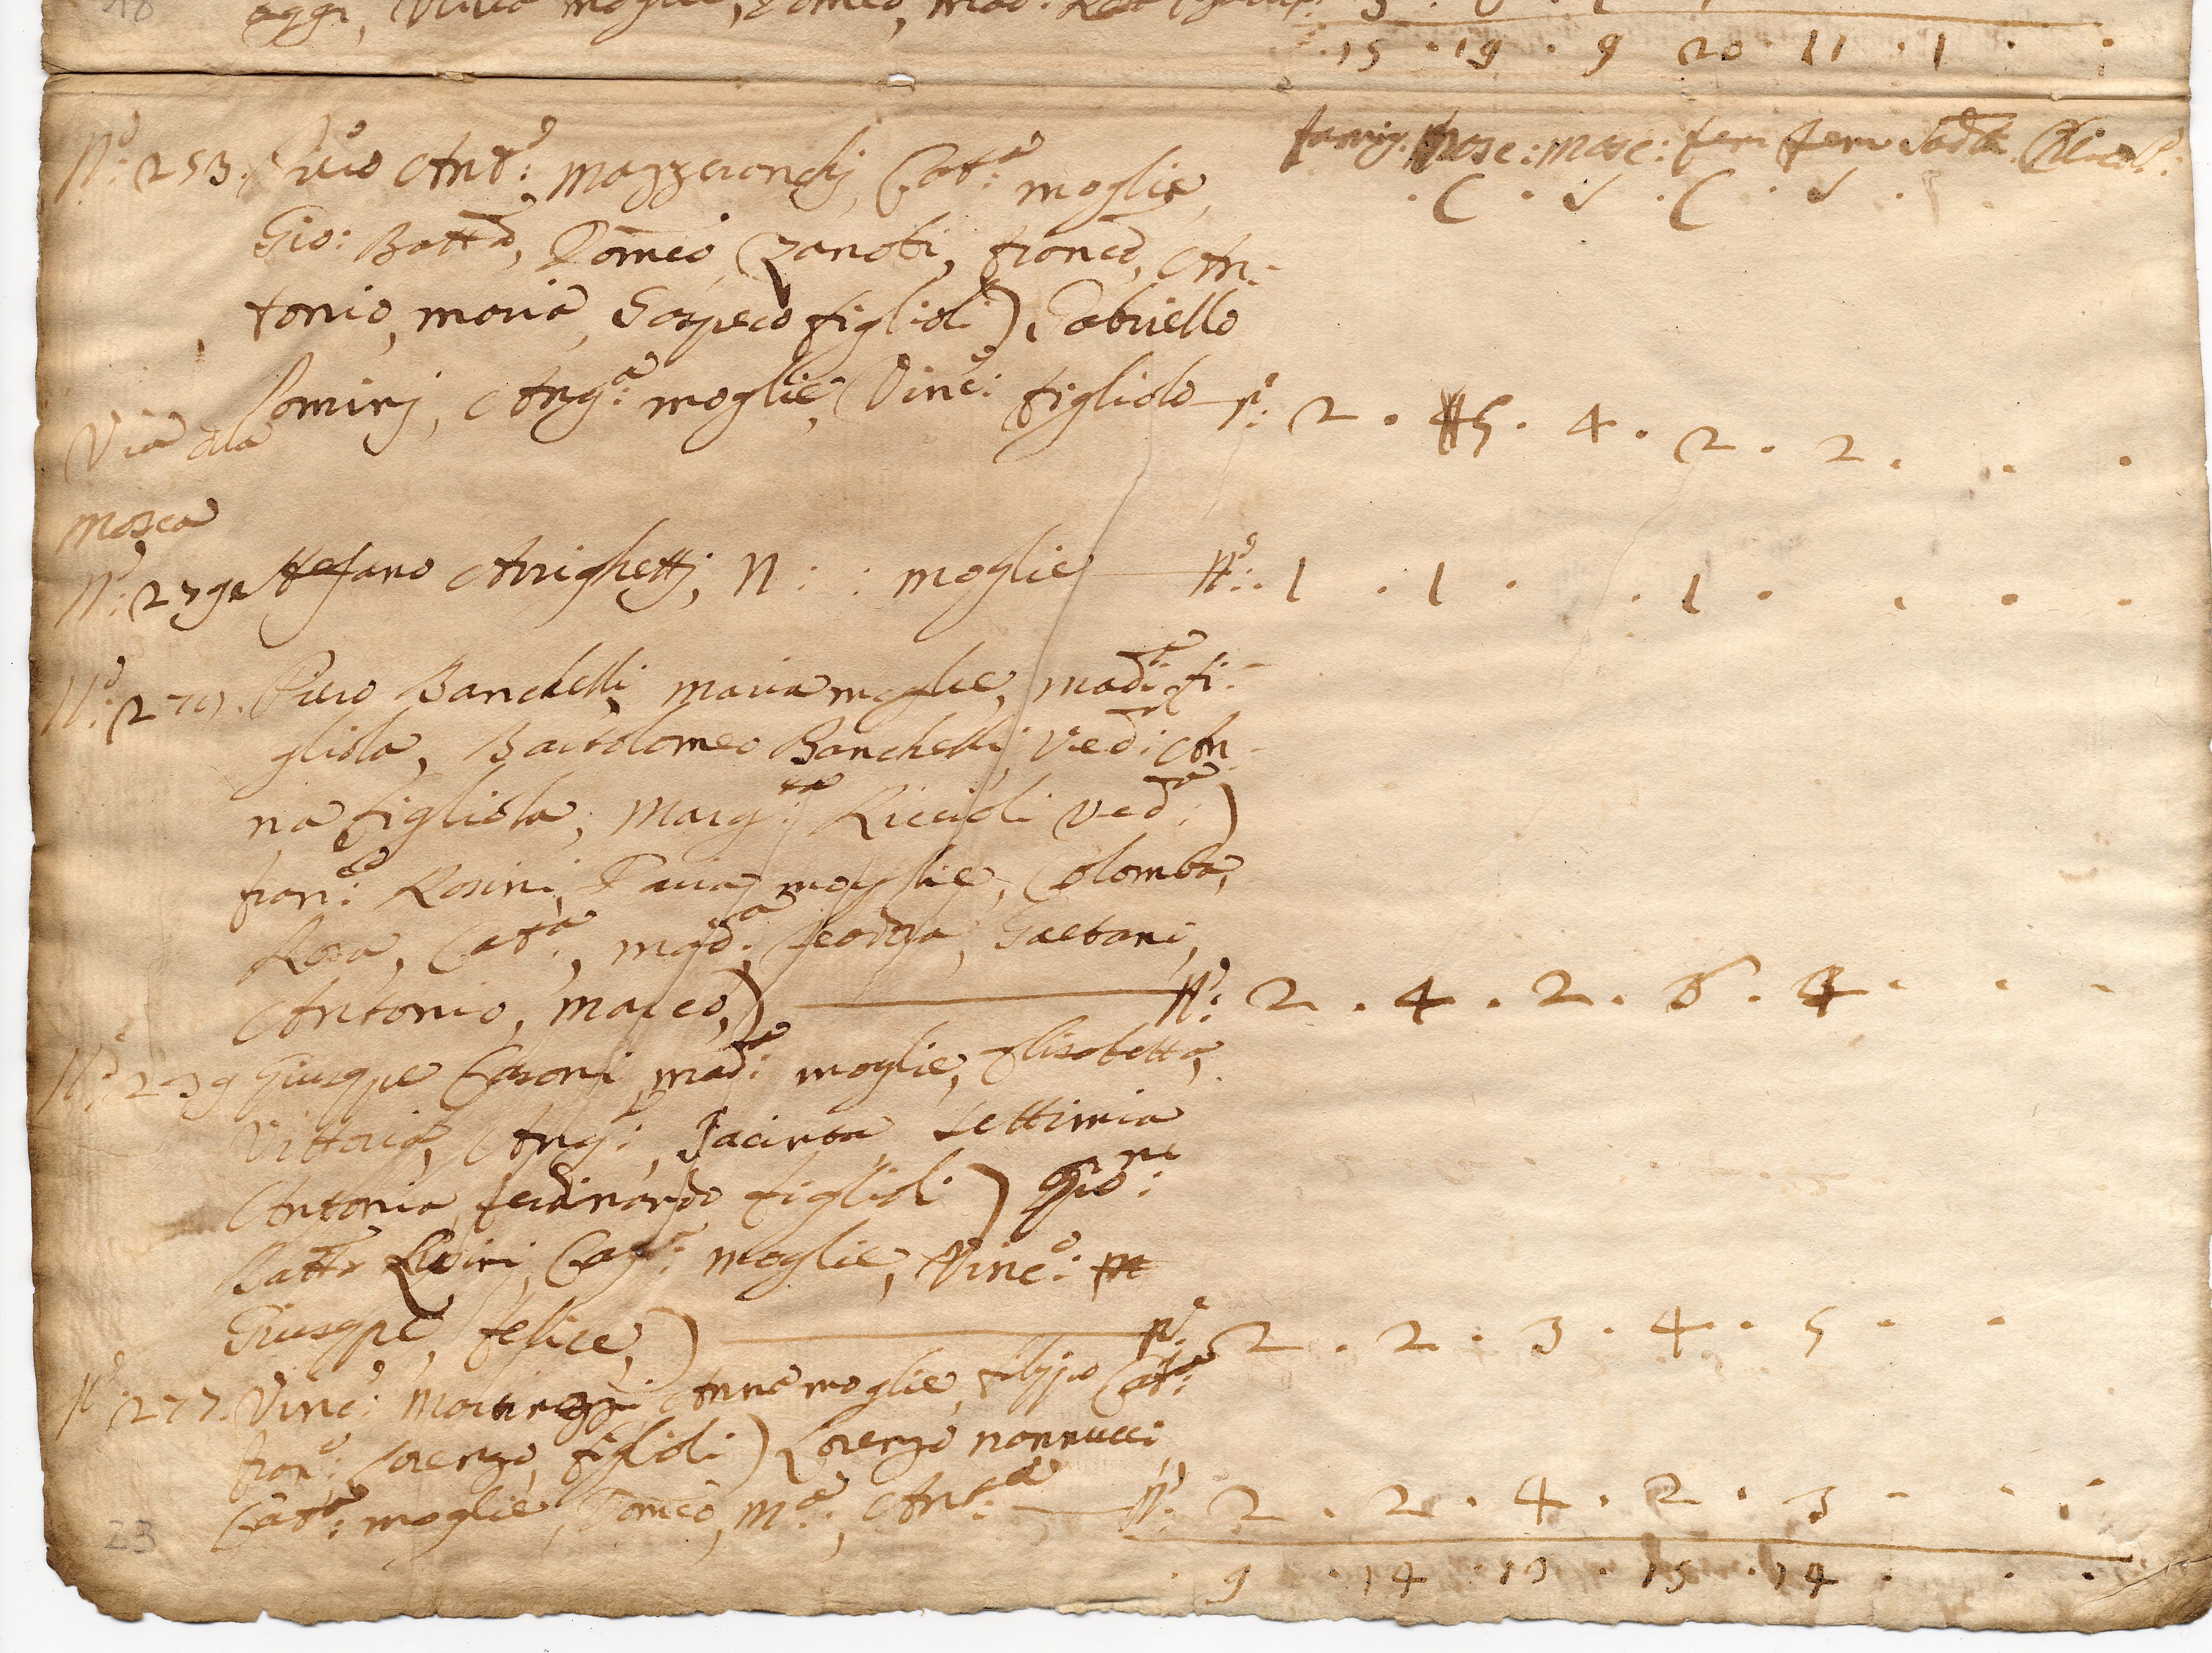 aggi, moglie, Domco,
. 15 . 19 . 9 20 . 11 . 1 . .
famig. Masc: Masc: fem fem Sacd.
. C . S . C . S .
N.º: 253. Piero Ant.º: Mazzerandj, Cat.ª moglie,
Gio: Batt.ª, Domco, (Zanobi, Franc.º, An-
tonio, Maria, Gaspero figlioli) Gabriello
Lominj, Ang.ª: moglie, Vinc.º: figliolo N.º: 2 . 5 . 4 . 2 . 2 . . .
Via dla
Mosca
Stefano Arrighettj, N: : moglie N.º: . 1 . 1 . . 1 . . . .
N.º: 279. Piero Banchelli, Maria moglie, Mad.ª: fi-
gliola, Bartolomeo Banchelli, Ved: An-
na figliola, Marg.ta Riccioli Ved.ª:)
Fran.co: Rosini, moglie, Colomba,
Rosa, Cat.ª, Mad.ª, Gaetani,
Antonio, Marco,) N.º: 2 . 4 . 2 . 6 . 3 . . .
N.º: 239 Giuseppe Casoni, Mad.ª: moglie, Elisabetta,
Vittoria, Ang.ª:, Jacinta, Settimia
Antonia, Ferdinando figlioli) Gio:
Batt.ª moglie, Vinc.º:
Giuseppe, Felice,) N.º: 2 . 2 . 3 . 4 . 5 . .
N.º: 277. Vinc.º: Anna moglie, Filippo Cat.ª:
Fran.º: Lorenzo, figlioli) Lorenzo Nannucci,
Cat.ª: moglie, Domco, M.ª:, Ant.ª: N.º: 2 . 2 . 4 . 2 . 3 . . .
23
. 9 . 14 . 13 . 15 . 14 . . .